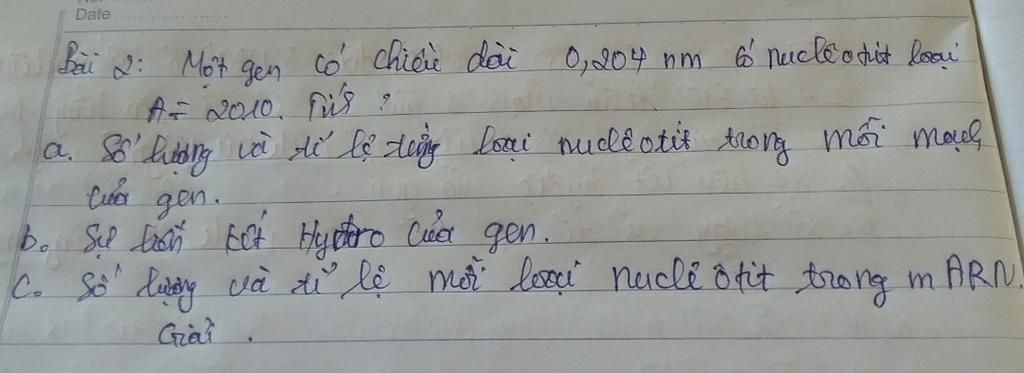 Date
Bài 2: Một gen có chiều dài 0,204 nm có nuclêôtit loại
A = 2010. Tí8 ?
a. Số lượng và tỉ lệ từng loại nuclêôtit trong mỗi mạch
của gen.
b. Số liên kết Hyđro của gen.
c. Số lượng và tỉ lệ mỗi loại nuclêôtit trong mARN.
Giải.